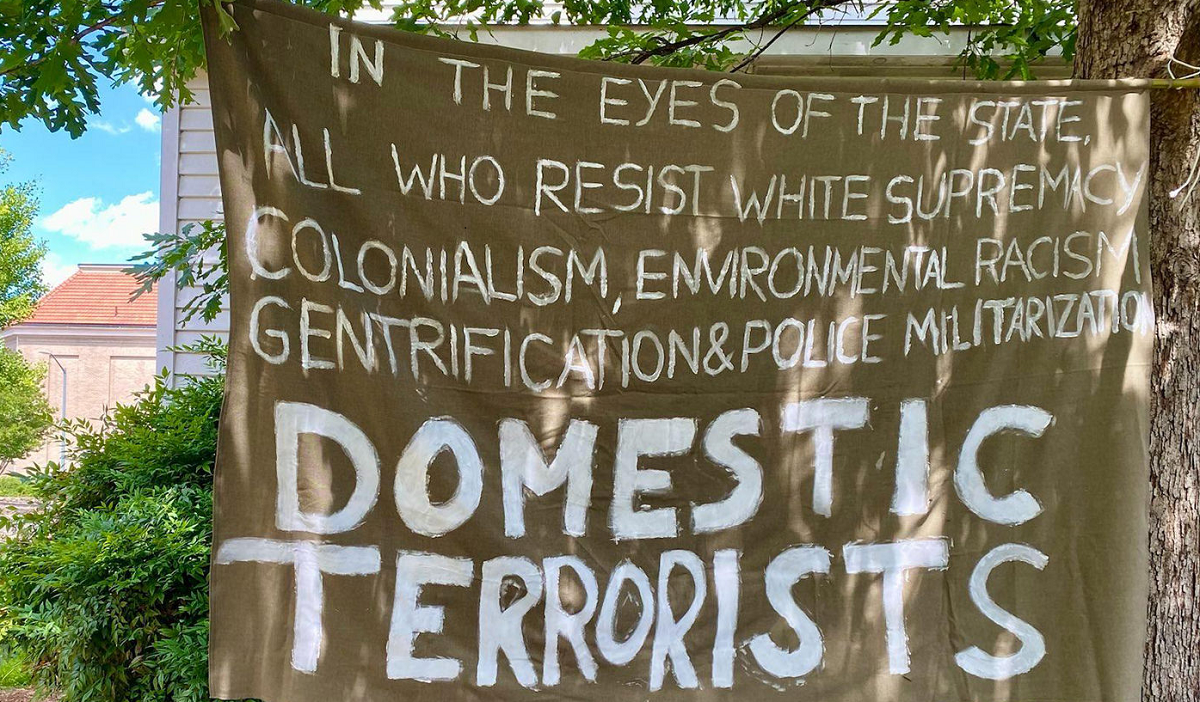 IN THE EYES OF THE STATE,
ALL WHO RESIST WHITE SUPREMACY
COLONIALISM, ENVIRONMENTAL RACISM
GENTRIFICATION & POLICE MILITARIZATION
DOMESTIC
TERRORISTS